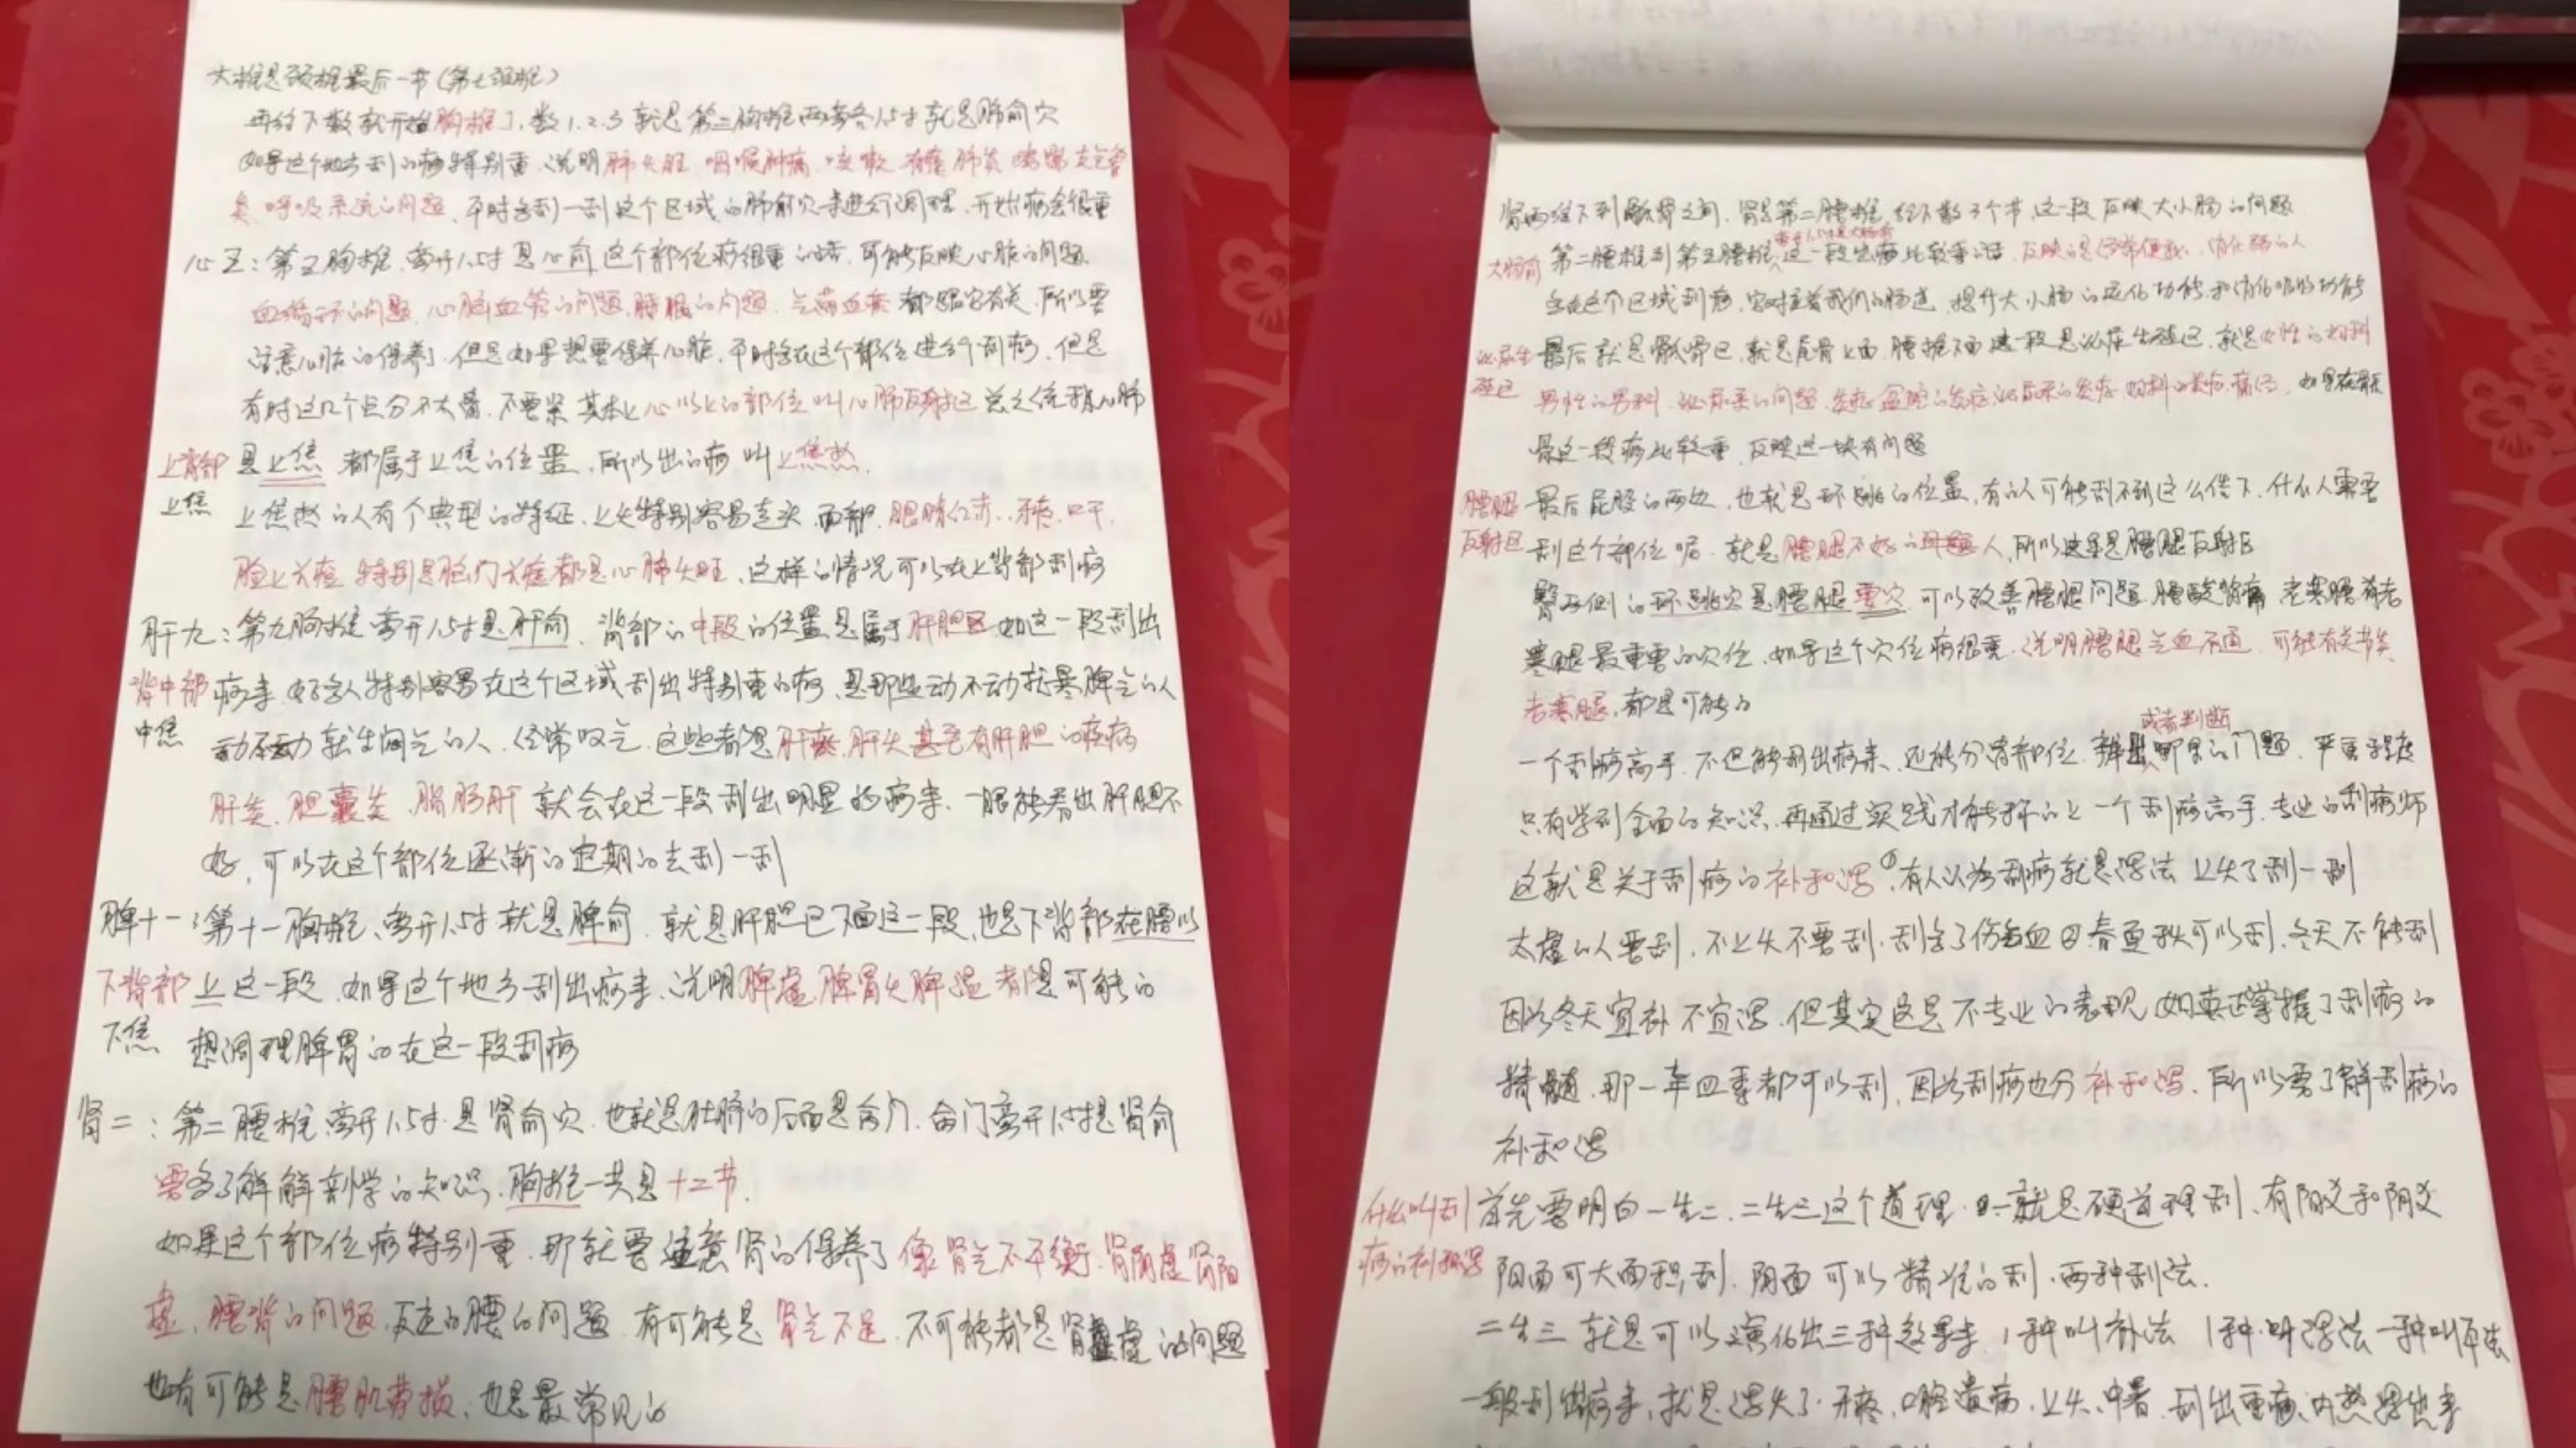 大椎是颈椎最后一节(第七颈椎)
再往下数就开始胸椎了,数1.2.3就是第三胸椎两旁各1.5寸就是肺俞穴
如果这个地方刮的痧特别重,说明肺火旺 咽喉肿痛,咳嗽 有痰 肺炎 哮喘 支气管
炎,呼吸系统的问题,平时多刮一刮这个区域的肺俞穴来进行调理,开始痧会很重
心五:第五胸椎,旁开1.5寸是心俞,这个部位痧很重的话,可能反映心脏的问题
血循环的问题,心脑血管的问题,睡眠的问题,气滞血瘀 都跟它有关,所以要
注意心脏的保养了,但是如果想要保养心脏,平时多在这个部位进行刮痧,但是
有时这几个点分不太清,不要紧 其本上心以上的部位叫心肺反射区 总之统称心肺
上背部 是上焦 都属于上焦的位置,所以出的痧叫上焦热
上焦 上焦热的人有个典型的特征,上火特别容易走头 面部,眼睛红赤,牙疼,口干
脸上长痘 特别是脑门长痘都是心肺火旺,这样的情况可以在上背部刮痧
肝九:第九胸椎旁开1.5寸是肝俞,背部的中段的位置是属于肝胆区 如这一段刮出
背中部 痧来,好多人特别容易在这个区域刮出特别重的痧,是那些动不动就暴脾气的人
中焦 动不动就生闷气的人,经常叹气,这些都是肝瘀,肝火甚至有肝胆的疾病
肝炎,胆囊炎,脂肪肝 就会在这一段刮出明显的痧来,一眼能看出肝胆不
好,可以在这个部位逐渐的定期的去刮一刮
脾十一:第十一胸椎、旁开1.5寸就是脾俞,就是肝胆区下面这一段,也是下背部在腰以
下背部 上这一段,如果这个地方刮出痧来,说明脾虚,脾胃火脾湿 都是可能的
下焦 想调理脾胃的在这一段刮痧
肾二:第二腰椎,旁开1.5寸是肾俞穴,也就是肚脐的后面是命门,命门旁开1.5寸是肾俞
要多了解解剖学的知识,胸椎一共是十二节,
如果这个部位痧特别重,那就要注意肾的保养了 像肾气不平衡,肾阴虚肾阳
虚,腰背的问题,反应的腰的问题,有可能是肾气不足,不可能都是肾虚的问题
也有可能是腰肌劳损,也是最常见的
肾再往下到骶骨之间,肾是第二腰椎,往下数3个节,这一段反映大小肠的问题
旁开1.5寸是大肠俞
大肠俞 第二腰椎到第五腰椎,这一段出痧比较重的话,反映的是经常便秘,消化弱的人
多在这个区域刮痧,它对应着我们的肠道,提升大小肠的运化功能和消化吸收功能
泌尿生 最后就是骶骨区,就是尾骨上面,腰椎下面这一段是泌尿生殖区,就是女性的妇科
殖区 男性的男科,泌尿系的问题,炎症,盆腔的炎症,泌尿系的炎症,妇科的炎症,痛经,如果在骶
骨这一段痧比较重,反映这一块有问题
腰腿 最后屁股的两边,也就是环跳的位置,有的人可能刮不到这么往下,什么人需要
反射区 刮这个部位呢,就是腰腿不好的人,所以这里是腰腿反射区
臀两侧的环跳穴是腰腿要穴,可以改善腰腿问题,腰酸背痛 老寒腰 有老
寒腿最重要的穴位,如果这个穴位痧很重,说明腰腿气血不通,可能有关节炎
老寒腿,都是可能的
或者判断
一个刮痧高手,不但能刮出痧来,还能分清部位,辨出哪里的问题,严重程度
只有学到全面的知识,再通过实践才能称的上一个刮痧高手,专业的刮痧师
这就是关于刮痧的补和泻①,有人认为刮痧就是泻法 上火了刮一刮
太虚的人要刮,不上火不要刮,刮多了伤气血②春夏秋可以刮,冬天不能刮
因为冬天宜补不宜泻,但其实这是不专业的表现,如真正掌握了刮痧的
精髓,那一年四季都可以刮,因为刮痧也分补和泻,所以要了解刮痧的
补和泻
什么叫刮 首先要明白一生二,二生三这个道理,一就是硬道理刮,有阳面和阴面
痧的补和泻 阳面可大面积刮,阴面可以精准的刮,两种刮法.
二生三就是可以演化出三种效果来,1种叫补法 1种叫泻法 一种叫平法
一般刮出痧来,就是泻火了,牙疼,口腔溃疡,上火,中暑,刮出重痧,内热泻出来